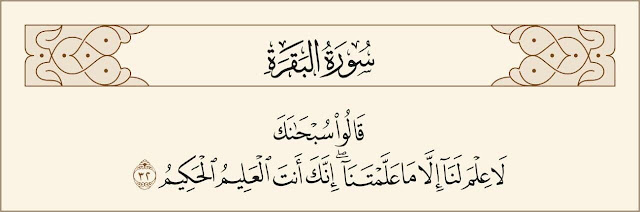 سُورَةُ البَقَرَةِ
قَالُوا۟ سُبْحَـٰنَكَ
لَا عِلْمَ لَنَآ إِلَّا مَا عَلَّمْتَنَآ ۖ إِنَّكَ أَنتَ ٱلْعَلِيمُ ٱلْحَكِيمُ ٣٢